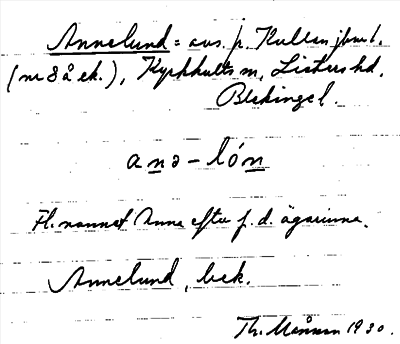 Annelund = avs. p. Kullen jbnr 1.
(nr 8 å ek.), Kyrkhults sn, Listers hd,
Blekinge l.
anə – lón
Fl. namnet Anna efter f. d. ägarinna.
Annelund, bek.
Th. Månsson 1930.